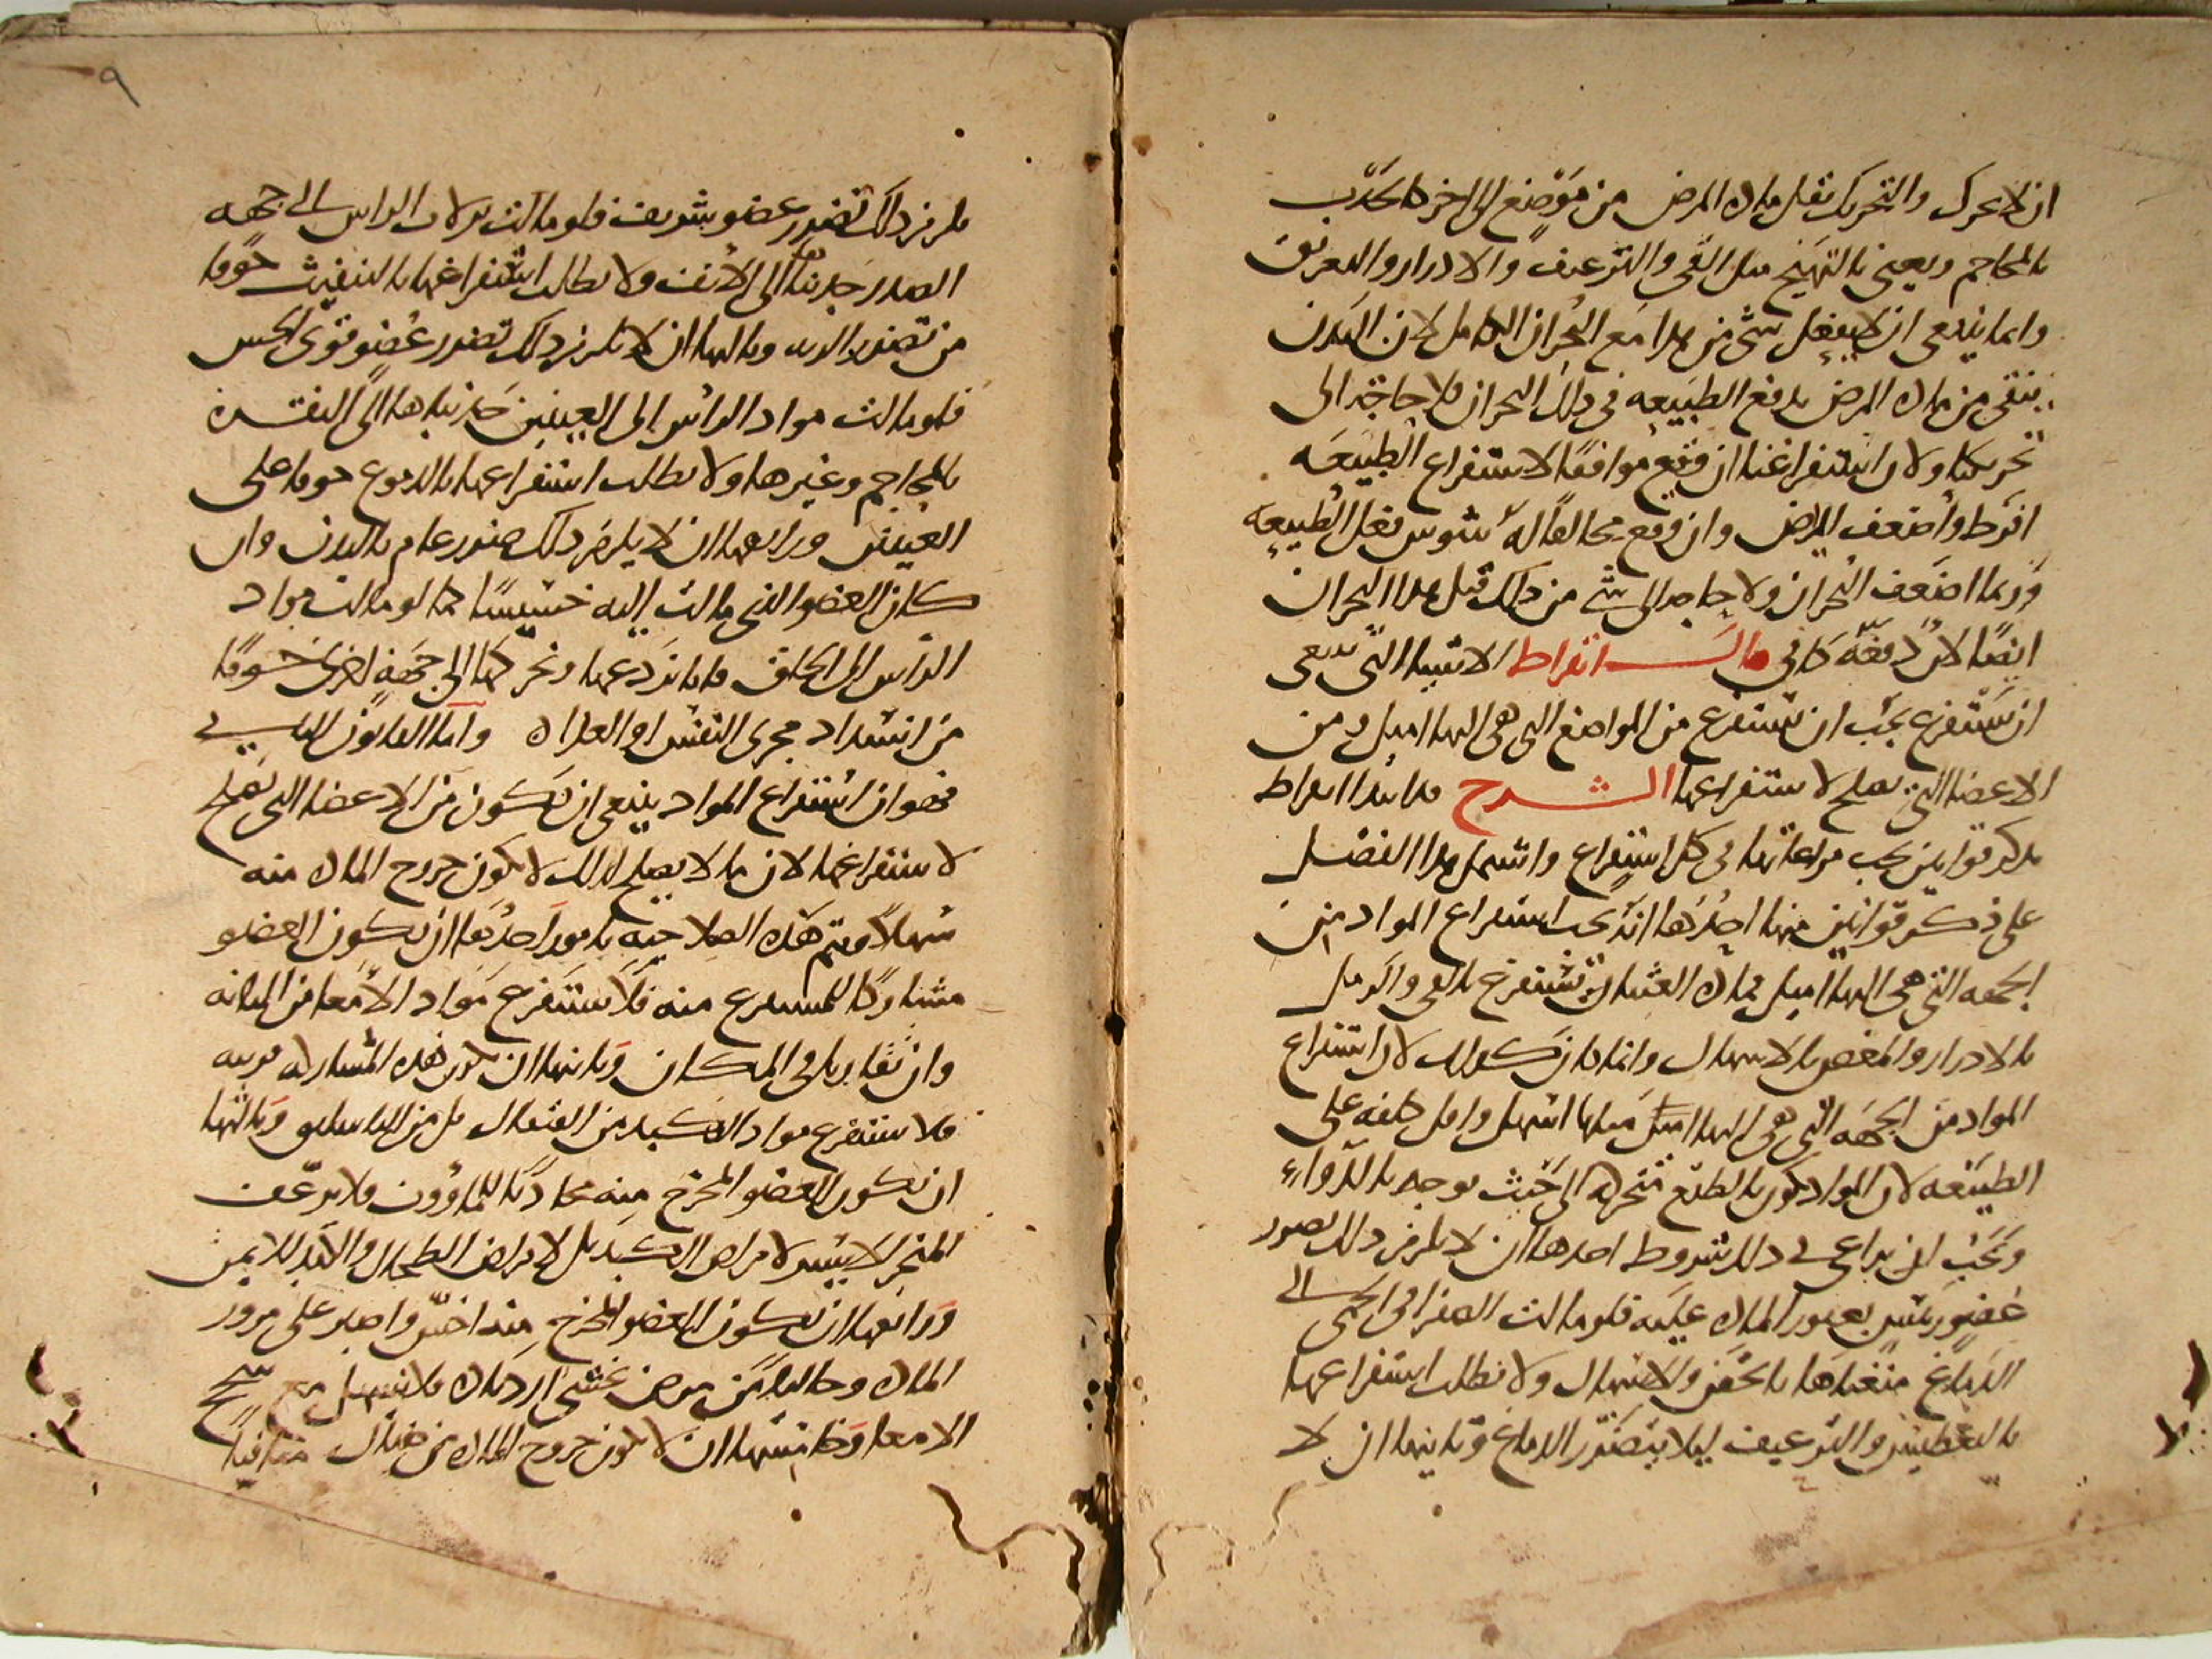 ان لا يحرك والتحريك نقل مادة المرض من موضع الى اخر كالجذب
بالمحاجم ويعني بالتهييج مثل القي والترعيف والادرار والتعريق
وانما ينبغي ان لا يفعل شي من هذا مع البحران الكامل لان البدن
ينقى من مادة المرض بدفع الطبيعه في ذلك البحران فلا حاجة الى
تحريكنا ولان استفراغنا ان وقع موافقا لاستفراغ الطبيعه
افرط واضعف المريض وان وقع مخالفا له شوش فعل الطبيعه
وربما اضعف البحران ولا حاجه الى شي من ذلك قبل هذا البحران
ايضا لان دفعه كافي قال ابقراط الاشيا التي ينبغي
ان تستفرغ يجب ان تستفرغ من المواضع التي هي اليها اميل ومن
الاعضا التي تصلح لاستفراغها الشرح هذا ابتدا ابقراط
بذكر قوانين يجب مراعاتها في كل استفراغ واشتمل هذا الفصل
على ذكر قوانين منها احدها انه يجب استفراغ المواد من
الجهه التي هي اليها اميل فمادة الغثيان تستفرغ بالقي والرمل
بالادرار والمغص بالاسهال وانما كان كذلك لان استفراغ
المواد من الجهه التي هي اليها اميل ميلها اسهل واقل كلفه على
الطبيعه لان المواد تكون بالطبع متحركه الى حيث توجه بالدواء
ويجب ان يراعى في ذلك شروط احدها ان لا يلزم ذلك تضرر
عضو رئيس بعبور المادة عليه فلو مالت الصفرا في الحمى الى
الدماغ منعناها بالحقن والاسهال ولا نطلب استفراغها
بالتعطيس والترعيف ليلا يتضرر الدماغ وثانيها ان لا
٩
يلزم ذلك تضرر عضو شريف فلو مالت نزلات الراس الى جهه
الصدر جذبناها الى الانف ولا نطلب استفراغها بالتنفيث خوفا
من تضرر الريه وثالثها ان لا يلزم ذلك تضرر عضو قوي الحس
فلو مالت مواد الراس الى العينين جذبناها الى النقرة
بالمحاجم وغيرها ولا نطلب استفراغها بالدموع خوفا على
العينين ورابعها ان لا يلزم ذلك ضرر عام بالبدن وان
كان العضو الذي مالت اليه خسيسا كما لو مالت مواد
الراس الى الحلق فانا نردعها ونحركها الى جهة اخرى خوفا
من انسداد مجرى النفس او الغذاء واما القانون الثاني
فهو ان استفراغ المواد ينبغي ان تكون من الاعضا التي تصلح
لاستفراغها لان ما لا يصلح لذلك لا يكون خروج المادة منه
سهلا ويتم هذه الصلاحيه بامور احدها ان يكون العضو
مشاركا للمستفرغ منه فلا تستفرغ مواد الامعا من المثانه
وان تقاربا في المكان وثانيها ان تكون هذه المشاركه قريبه
فلا تستفرغ مواد الكبد من القيفال بل من الباسليق وثالثها
ان يكون العضو المخرج منه محاذيا للماووف فلا يرعف
المنخر الايسر لامراض الكبد بل لامراض الطحال والكبد للايمن
ورابعها ان يكون العضو المخرج منه اخس واصبر على مرور
المادة وخاليا من مرض غشي ازدياده فلا نسهل مع سحج
الامعا وخامسها ان لا يكون خروج المادة من هناك منافيا